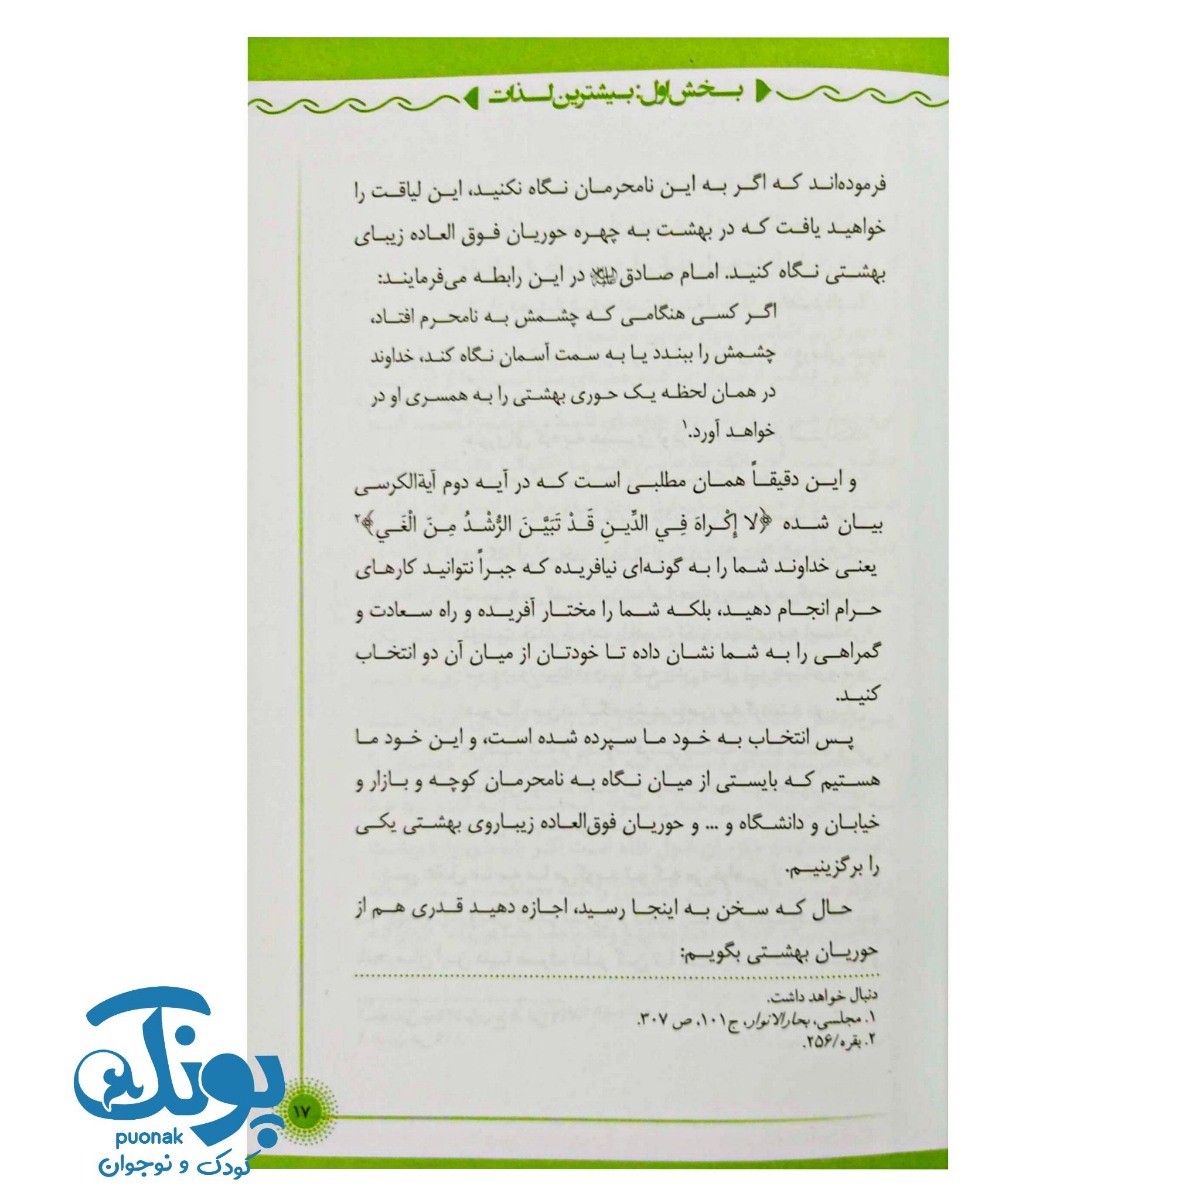 بخش اول: بیشترین لذات
فرموده‌اند که اگر به این نامحرمان نگاه نکنید، این لیاقت را
خواهید یافت که در بهشت به چهره حوریان فوق العاده زیبای
بهشتی نگاه کنید. امام صادق علیه‌السلام در این رابطه می‌فرمایند:
اگر کسی هنگامی که چشمش به نامحرم افتاد،
چشمش را ببندد یا به سمت آسمان نگاه کند، خداوند
در همان لحظه یک حوری بهشتی را به همسری او در
خواهد آورد.۱
و این دقیقاً همان مطلبی است که در آیه دوم آیةالکرسی
بیان شده ﴿لا إِكْراهَ فِي الدِّينِ قَدْ تَبَيَّنَ الرُّشْدُ مِنَ الْغَي﴾۲
یعنی خداوند شما را به گونه‌ای نیافریده که جبراً نتوانید کارهای
حرام انجام دهید، بلکه شما را مختار آفریده و راه سعادت و
گمراهی را به شما نشان داده تا خودتان از میان آن دو انتخاب
کنید.
پس انتخاب به خود ما سپرده شده است، و این خود ما
هستیم که بایستی از میان نگاه به نامحرمان کوچه و بازار و
خیابان و دانشگاه و ... و حوریان فوق‌العاده زیباروی بهشتی یکی
را برگزینیم.
حال که سخن به اینجا رسید، اجازه دهید قدری هم از
حوریان بهشتی بگویم:
دنبال خواهد داشت.
۱. مجلسی، بحارالانوار، ج۱۰۱، ص ۳۰۷.
۲. بقره/۲۵۶.
۱۷
پونک
puonak
کودک و نوجوان